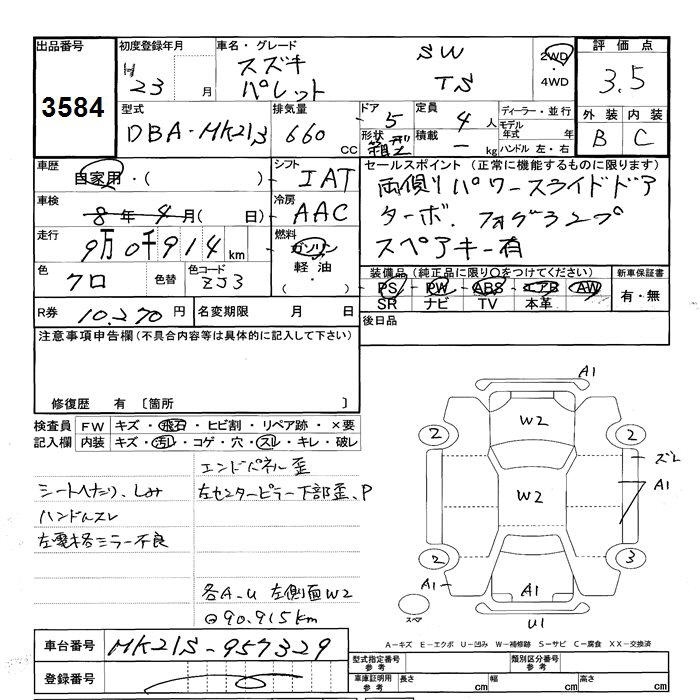 出品番号 初度登録年月 車名・グレード 評価点
3584 H23 月 スズキ パレット SW TS 2WD・4WD 3.5
型式 排気量 ドア 定員 ディーラー・並行 外装 内装
DBA-MK21S 660 CC 5 4 人 モデル年式 年 B C
形状 箱型 積載 - kg ハンドル 左・右
車歴 自家用・( ) シフト IAT セールスポイント(正常に機能するものに限ります)
車検 8年4月( 日) 冷房 AAC 両側パワースライドドア
走行 9万0千914km 燃料 ガソリン ターボ、フォグランプ
軽油・( ) スペアキー有
色 クロ 色替 色コード ZJ3 装備品(純正品に限り○をつけてください) 新車保証書
PS PW ABS エアB AW 有・無
SR ナビ TV 本革
R券 10,270円 名変期限 月 日 後日品
注意事項申告欄(不具合内容等は具体的に記入して下さい)
修復歴 有 〔箇所 〕
検査員 FW キズ・飛石・ヒビ割・リペア跡・×要
記入欄 内装 キズ・汚レ・コゲ・穴・スレ・キレ・破レ
エンドパネル歪
シートへたり、しみ 左センターピラー下部歪、P
ハンドルスレ
左電格ミラー不良
各A-U 左側面W2
@90,915km
A1
W2
2 2
ズレ
A1
W2
2 3
A1
A1
スペア
U1
A-キズ E-エクボ U-凹み W-補修跡 S-サビ C-腐食 XX-交換済
車台番号 MK21S-957329
型式指定番号 参考 類別区分番号 参考
登録番号 車庫証明用 参考 長さ cm 幅 cm 高さ cm